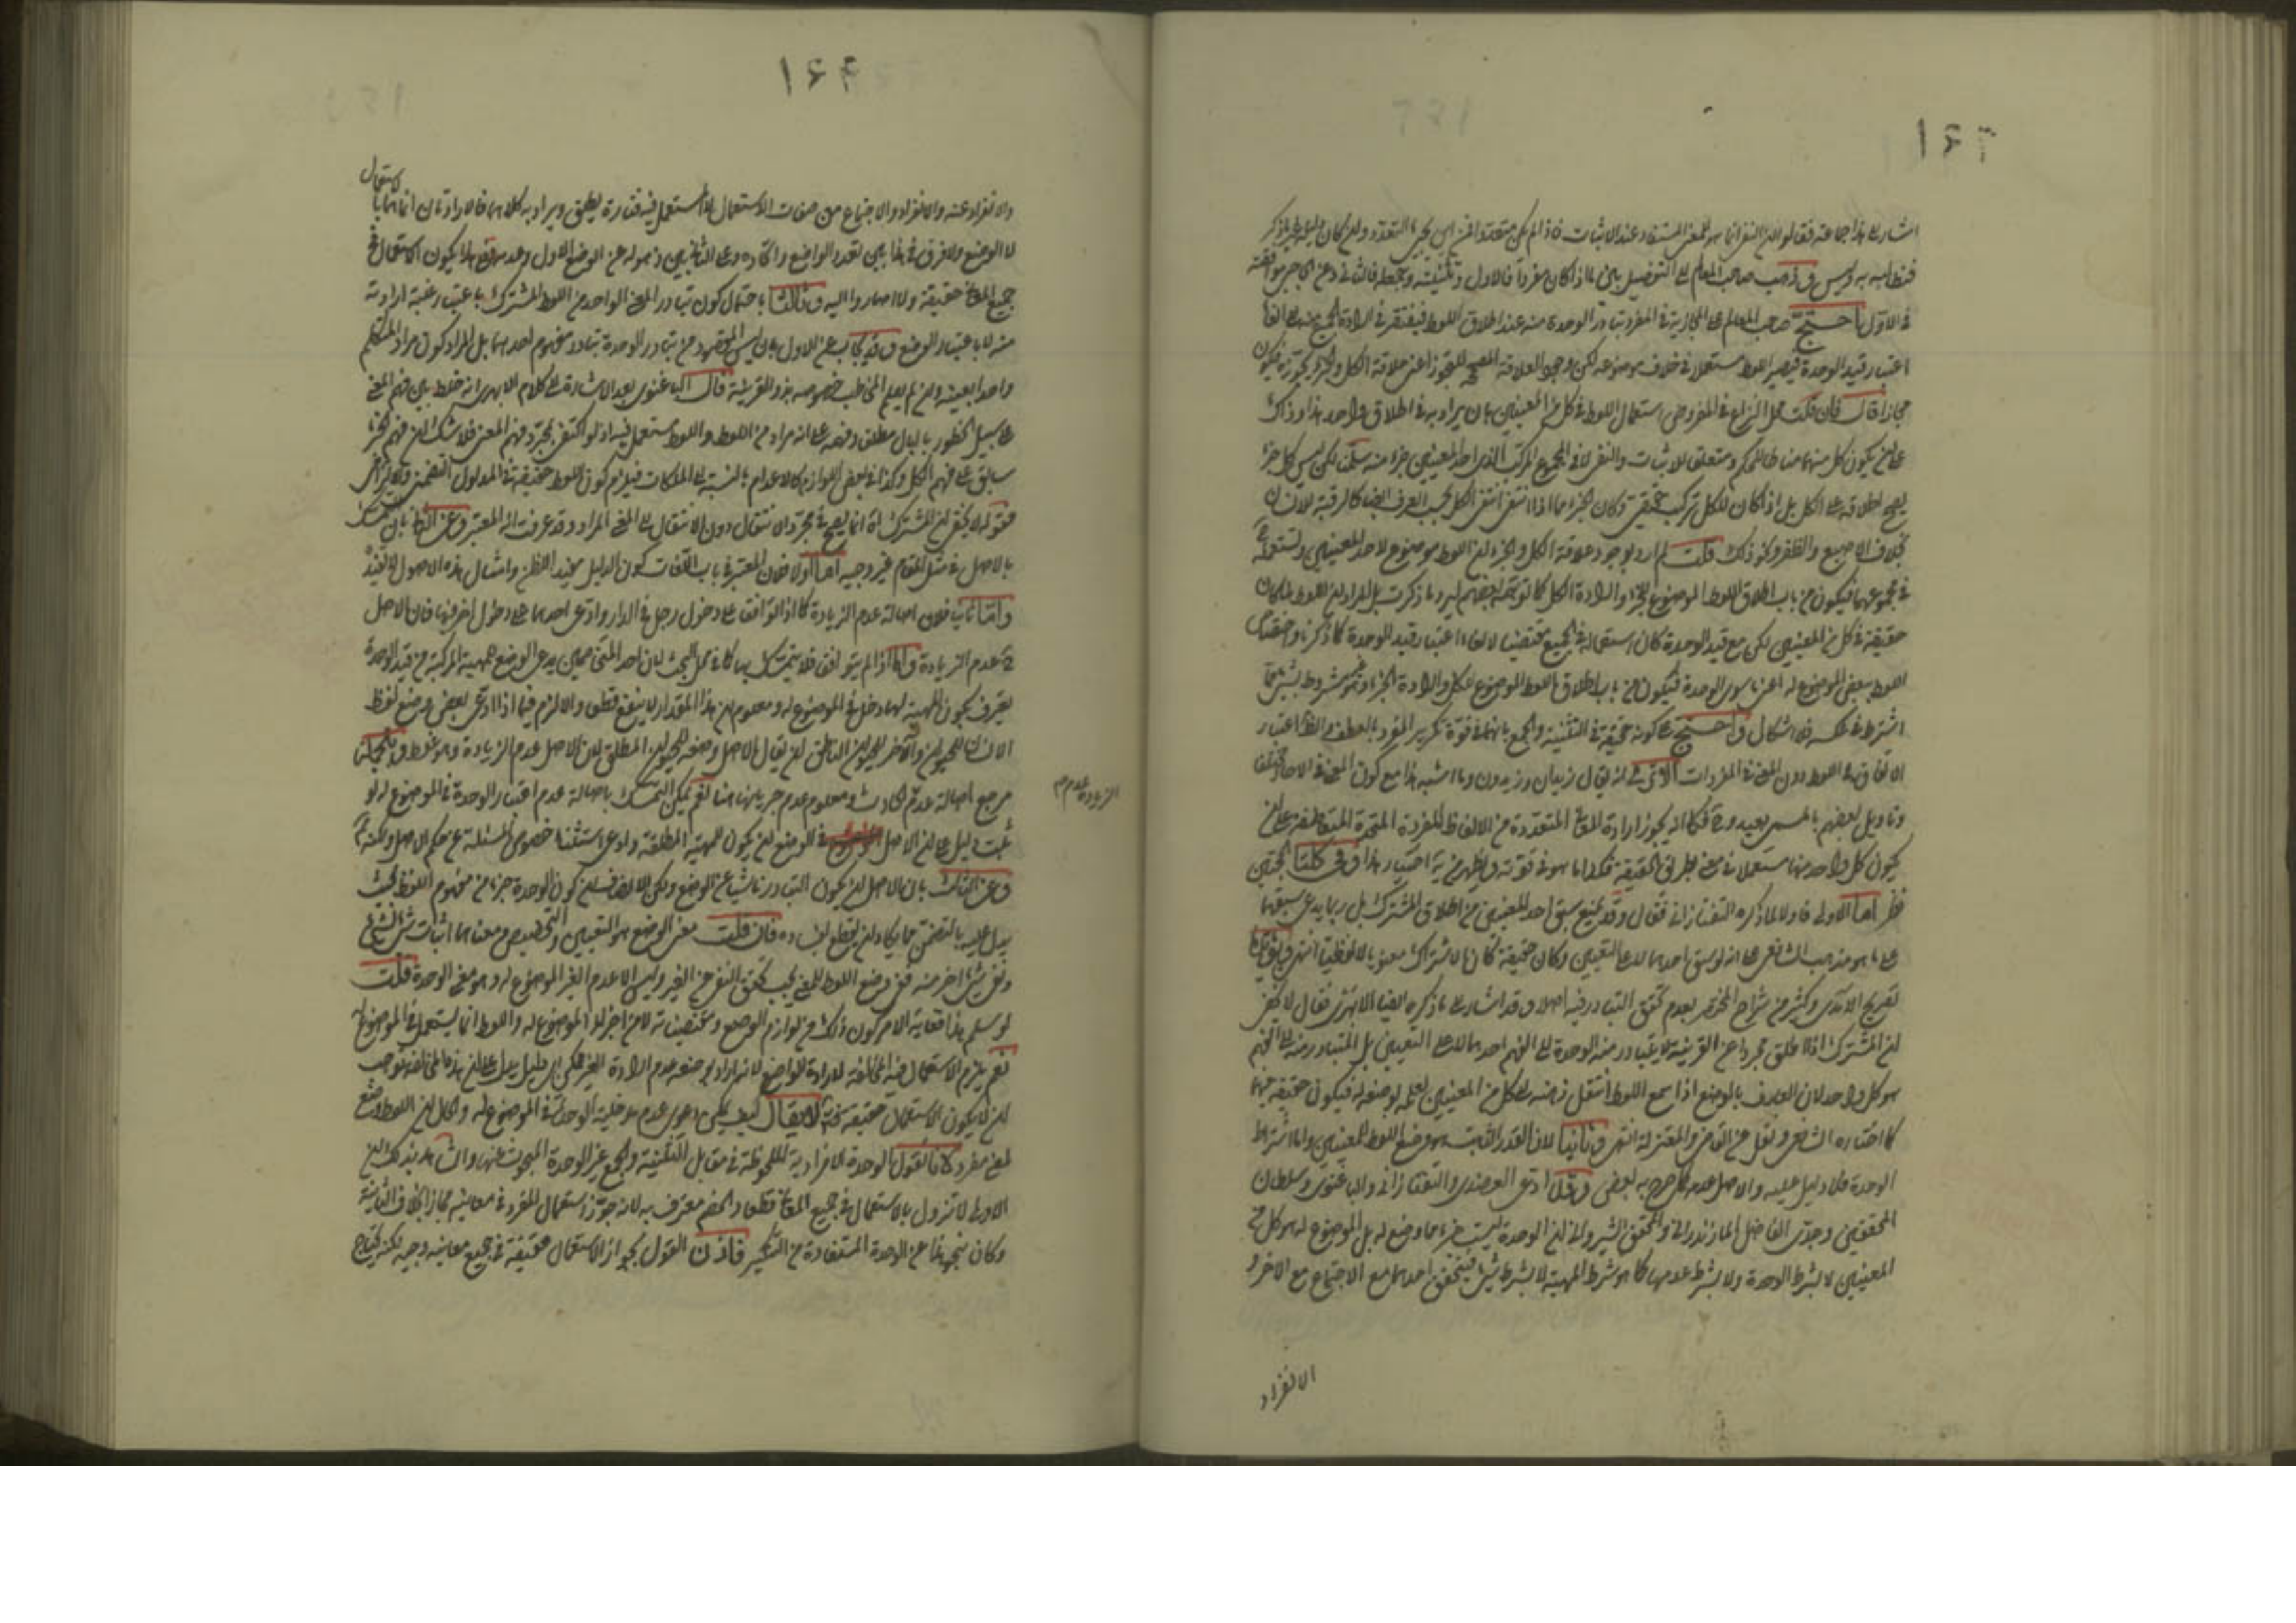 اشار الى هذا جماعة فقالوا ان النفى انما هو للمعنى المستفاد عند الاثبات فاذا لم يكن متعددا فمن اين يجئ التعدد
ذهب صاحب المعالم الى التفصيل اذا كان مفردا فالاول وتثنيته وجمعه فالثانى
فى الاول احتج صاحب المعالم على المجازية فى المفرد بتبادر الوحدة منه عند اطلاق اللفظ فيفتقر فى ارادة الجميع منه الى الغاء
اعتبار قيد الوحدة فيصير اللفظ مستعملا فى خلاف موضوعه لكن وجود العلاقة المصححة للتجوز اعنى علاقة الكل والجزء يجوزه فيكون
مجازا قال فان قلت محل النزاع فى المفرد هو استعمال اللفظ فى كل من المعنيين بان يراد به فى اطلاق واحد هذا وذاك
على ان يكون كل منهما مناطا للحكم ومتعلقا للاثبات والنفى لا فى المجموع المركب الذى احد المعنيين جزء منه سلمنا لكن ليس كل جزء
يصح اطلاقه على الكل بل اذا كان للكل تركب حقيقى وكان الجزء مما اذا انتفى انتفى الكل بحسب العرف ايضا كالرقبة للانسان
بخلاف الاصبع والظفر ونحو ذلك قلت لم ارد بوجود علاقة الكل والجزء ان اللفظ موضوع لاحد المعنيين ومستعمل
فى مجموعهما فيكون من باب اطلاق اللفظ الموضوع للجزء وارادة الكل كما توهمه بعضهم ليرد ما ذكرت بل المراد ان اللفظ لما كان
حقيقة فى كل من المعنيين لكن مع قيد الوحدة كان استعماله فى الجميع مقتضيا لالغاء اعتبار قيد الوحدة كما ذكرنا واختصاص
اللفظ ببعض الموضوع له اعنى ما سوى الوحدة فيكون من باب اطلاق اللفظ الموضوع للكل وارادة الجزء وهو غير مشروط بشئ مما
اشترط فى عكسه فلا اشكال واحتج على كونه حقيقة فى التثنية والجمع بانهما فى قوة تكرير المفرد بالعطف والظاهر اعتبار
الاتفاق فى اللفظ دون المعنى فى المفردات الا ترى انه يقال زيدان وزيدون وما اشبه هذا مع كون المعنى فى الاحاد مختلفا
وتاويل بعضهم بالمسمى بعيد وح فكما انه يجوز ارادة المعانى المتعددة من الالفاظ المفردة المتحدة المتعاطفة على ان
يكون كل واحد منها مستعملا فى معنى بطريق الحقيقة فكذا ما هو فى قوته وفى كلتا الحجتين
نظر اما الاولى فاولا لما ذكره التفتازانى فقال وقد يمنع سبق احد المعنيين من اطلاق المشترك بل ربما يدعى سبقهما
على ما هو مذهب الشافعى على انه لو سبق احدهما لا على التعيين وكان حقيقة كان الاشتراك معنويا لا لفظيا انتهى
تصريح الامدى وكثير من شراح المختصر بعدم تحقق التبادر فيه اصلا وقد اشار الى ما ذكره ايضا الابهرى فقال لا يخفى
ان المشترك اذا اطلق مجردا عن القرينة لا يتبادر منه الوحدة الى الفهم احدهما لا على التعيين بل المتبادر منه الى الفهم
هو كل واحد لان العارف بالوضع اذا سمع اللفظ انتقل ذهنه الى كل من المعنيين لعلمه بوضعه له فيكون حقيقة فيهما
كما اختاره الشافعى ونقل عن القاضى والمعتزلة انتهى وثانيا لان القدر الثابت هو وضع اللفظ للمعنيين واما اشتراط
الوحدة فلا دليل عليه والاصل عدمه كما صرح به بعض وقد ادعى العضدى والتفتازانى والباغنوى وسلطان
المحققين وجدى الفاضل المازندرانى والمحقق الشيروانى ان الوحدة ليست جزء ما وضع له بل الموضوع له هو كل من
المعنيين لا بشرط الوحدة ولا بشرط عدمها كما هو شرط المهية لا بشرط شئ فيتحقق احدهما مع الاجتماع مع الاخر و
الانفراد
۱۶۴
والانفراد عنه والانفراد والاجتماع من صفات الاستعمال لا المستعمل فيه فتارة يطلق ويراد به كلاهما فالارادتان
لا الوضع ولا فرق فى هذا بين تعدد الواضع واتحاده
جميع المعانى حقيقة وثالثا باحتمال كون تبادر المعنى الواحد من اللفظ المشترك باعتبار غلبة ارادته
منه لا باعتبار الوضع وقد يجاب عن الاول بان ليس المقصود من تبادر الوحدة تبادر مفهوم احدهما بل المراد كون مراد المتكلم
واحدا بعينه وان لم يعلم المخاطب خصوصه بدون القرينة قال الباغنوى بعد الاشارة الى كلام الابهرى انه خلط بين فهم المعنى
على سبيل الخطور بالبال مطلقا وفهمه على انه مراد من اللفظ واللفظ مستعمل فيه اذ لو اكتفى بمجرد فهم المعنى فلا شك ان فهم الجزء
سابق على فهم الكل وكذا فى بعض اللوازم كالاعدام بالنسبة الى الملكات فيلزم كون اللفظ حقيقة فى المدلول التضمنى والالتزامى
فقوله لا يخفى ان المشترك اه انما يصح فى مجرد الانتقال دون الانتقال الى المعنى المراد وقد عرفت انه المعتبر وعن الثانى بان التمسك
بالاصل فى مثل المقام غير وجيه اما اولا فلان المعتبر فى باب اللغات كون الدليل مفيد الظن وامثال هذه الاصول لا تفيده
واما ثانيا فلان اصالة عدم الزيادة كما اذا توافقا على دخول رجل فى الدار وادعى احدهما على دخول اخر فيها فان الاصل
ح عدم الزيادة واما اذا لم يتوافقا فلا يتمسك بها كما فى محل البحث لان احد المتخاصمين يدعى الوضع للمهية المركبة من قيد الوحدة
يعترف بكون المهية لها دخل فى الموضوع له ومعلوم ان هذا المقدار لا ينفع قطعا والا لزم فيما اذا ادعى بعض وضع لفظ
الانسان للحيوان والاخر للحيوان الناطق ان يقال الاصل وضعه للحيوان المطلق لان الاصل عدم الزيادة وهو غلط وبالجملة
مرجع اصالة عدم الحادث ومعلوم عدم جريانها هنا نعم يمكن التمسك باصالة عدم اعتبار الوحدة فى الموضوع له لو
ثبت دليل على ان الاصل فى الوضع ان يكون للمهية المطلقة وادعى استثناء خصوص المسئلة عن حكم الاصل ولكنه
وعن الثالث بان الاصل ان يكون التبادر ناشيا عن الوضع ولكن الانصاف ان كون الوحدة جزءا من مفهوم اللفظ بحيث
يدل عليه بالتضمن مما يكاد ان يقطع بفساده فان قلت معنى الوضع هو التعيين والتخصيص ومعناهما اثبات شئ لشئ
ونفى شئ اخر منه ففى وضع اللفظ للمعنى يجب تحقق النفى عن الغير وليس الا عدم الغير الموضوع له وهو معنى الوحدة قلت
لو سلم هذا فغاية الامر كون ذلك من لوازم الوضع ومقتضياته لا من اجزاء الموضوع له واللفظ انما يستعمل فى الموضوع له
نعم يلزم الاستعمال فيه المخالفة لارادة الواضع لانه اراد بوضعه عدم ارادة الغير لكن اى دليل يدل على ان هذه المخالفة توجب
ان لا يكون الاستعمال حقيقة لا يقال كيف يمكن دعوى عدم مدخلية الوحدة فى الموضوع له والحال ان اللفظ وضع
لمعنى مفرد لانا نقول الوحدة الافرادية الملحوظة فى مقابل التثنية والجمع غير الوحدة المبحوث عنها والشاهد بذلك ان
الاولى لا تزول بالاستعمال فى جميع المعانى قطعا والخصم معترف به لانه جوز استعمال المفرد فى معانيه مجازا بخلاف الثانية
وكان هذا عن الوحدة المستفادة من التنكير فاذن القول بجواز الاستعمال حقيقة فى جميع معانيه وجيه لكنه يحتاج